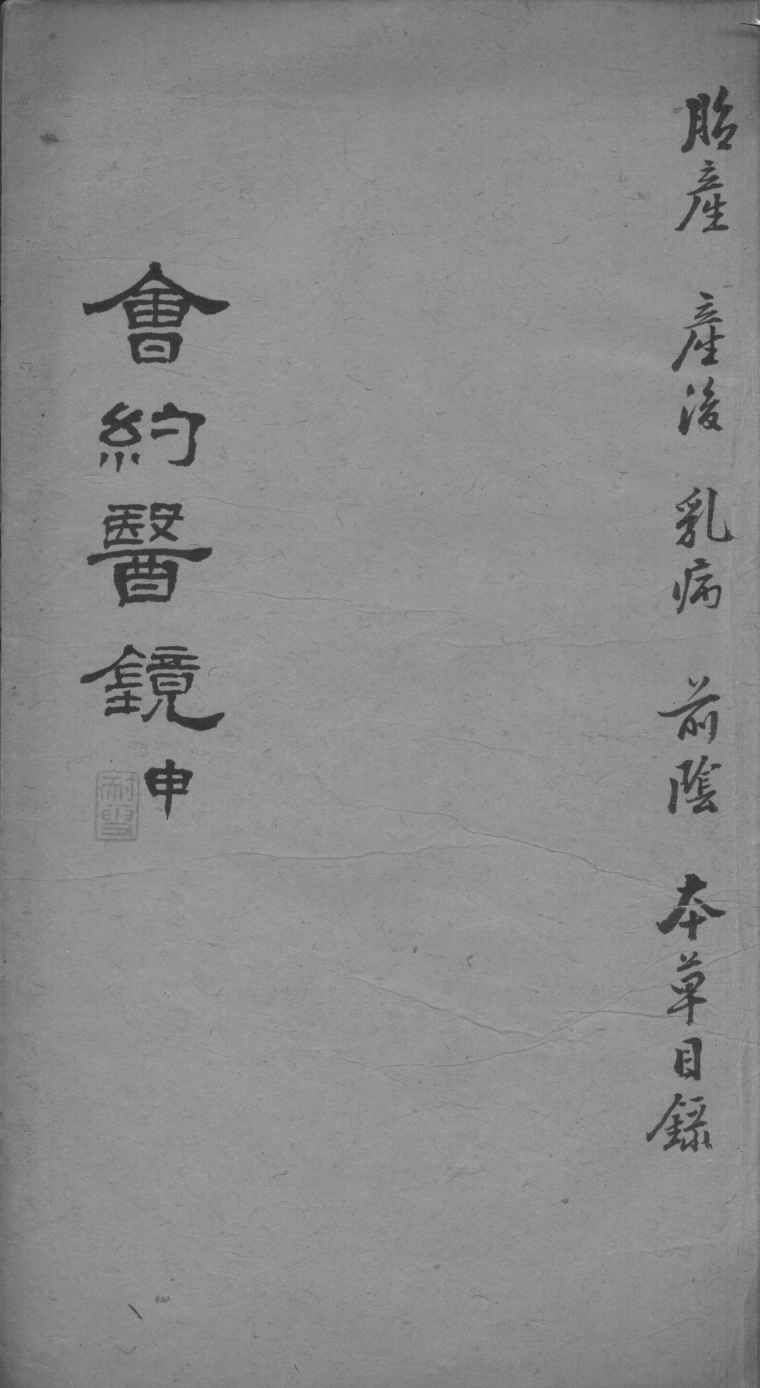 胎產 產後 乳病 前陰 本草目錄
會約醫鏡 申
耐雪